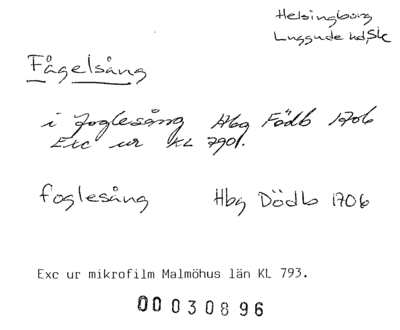 Helsingborg
Luggude hd, Sk
Fågelsång
i foglesång Hbg Födb 1706
Exc ur KL 7901.
foglesång Hbg Dödb 1706
Exc ur mikrofilm Malmöhus län KL 793.
00030896